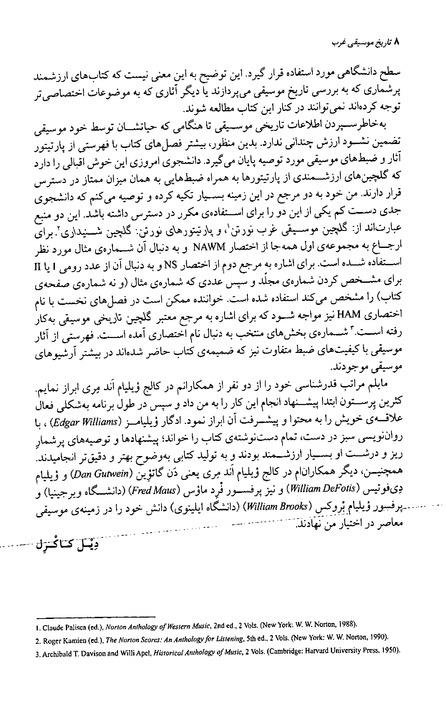 ۸ تاریخ موسیقی غرب
سطح دانشگاهی مورد استفاده قرار گیرد. این توضیح به این معنی نیست که کتاب‌های ارزشمند
پرشماری که به بررسی تاریخ موسیقی می‌پردازند یا دیگر آثاری که به موضوعات اختصاصی‌تر
توجه کرده‌اند نمی‌توانند در کنار این کتاب مطالعه شوند.
به‌خاطرسپردن اطلاعات تاریخی موسیقی تا هنگامی که حیاتشان توسط خود موسیقی
تضمین نشود ارزش چندانی ندارد. بدین منظور، بیشتر فصل‌های کتاب با فهرستی از پارتیتور
آثار و ضبط‌های موسیقی مورد توصیه پایان می‌گیرد. دانشجوی امروزی این خوش اقبالی را دارد
که گلچین‌های ارزشمندی از پارتیتورها به همراه ضبط‌هایی به همان میزان ممتاز در دسترس
قرار دارند. من خود به دو مرجع در این زمینه بسیار تکیه کرده و توصیه می‌کنم که دانشجوی
جدی دست کم یکی از این دو را برای استفاده‌ی مکرر در دسترس داشته باشد. این دو منبع
عبارت‌اند از: گلچین موسیقی غرب نورتن¹، و پارتیتورهای نورتن: گلچین شنیداری². برای
ارجاع به مجموعه‌ی اول همه‌جا از اختصار NAWM و به دنبال آن شماره‌ی مثال مورد نظر
استفاده شده است. برای اشاره به مرجع دوم از اختصار NS و به دنبال آن از عدد رومی I یا II
برای مشخص کردن شماره‌ی مجلد و سپس عددی که شماره‌ی مثال (و نه شماره‌ی صفحه‌ی
کتاب) را مشخص می‌کند استفاده شده است. خواننده ممکن است در فصل‌های نخست با نام
اختصاری HAM نیز مواجه شود که برای اشاره به مرجع معتبر گلچین تاریخی موسیقی به‌کار
رفته است.³ شماره‌ی بخش‌های منتخب به دنبال نام اختصاری آمده است. فهرستی از آثار
موسیقی با کیفیت‌های ضبط متفاوت نیز که ضمیمه‌ی کتاب حاضر شده‌اند در بیشتر آرشیوهای
موسیقی موجودند.
مایلم مراتب قدرشناسی خود را از دو نفر از همکارانم در کالج ویلیام اَند مِری ابراز نمایم.
کثرین پرستون ابتدا پیشنهاد انجام این کار را به من داد و سپس در طول برنامه به‌شکلی فعال
علاقه‌ی خویش را به محتوا و پیشرفت آن ابراز نمود. ادگار ویلیامز (Edgar Williams)، با
روان‌نویسی سبز در دست، تمام دست‌نوشته‌ی کتاب را خواند؛ پیشنهادها و توصیه‌های پرشمار
ریز و درشت او بسیار ارزشمند بودند و به تولید کتابی به‌وضوح بهتر و دقیق‌تر انجامیدند.
همچنین، دیگر همکاران‌ام در کالج ویلیام اَند مِری یعنی دَن گاتوَین (Dan Gutwein) و ویلیام
دِی‌فوتیس (William DeFotis) و نیز پرفسور فرِد ماؤس (Fred Maus) (دانشگاه ویرجینیا) و
پرفسور ویلیام بُروکس (William Brooks) (دانشگاه ایلینوی) دانش خود را در زمینه‌ی موسیقی
معاصر در اختیار من نهادند.
دِیل کاکرل
1. Claude Palisca (ed.), Norton Anthology of Western Music, 2nd ed., 2 Vols. (New York: W. W. Norton, 1988).
2. Roger Kamien (ed.), The Norton Scores: An Anthology for Listening, 5th ed., 2 Vols. (New York: W. W. Norton, 1990).
3. Archibald T. Davison and Willi Apel, Historical Anthology of Music, 2 Vols. (Cambridge: Harvard University Press, 1950).